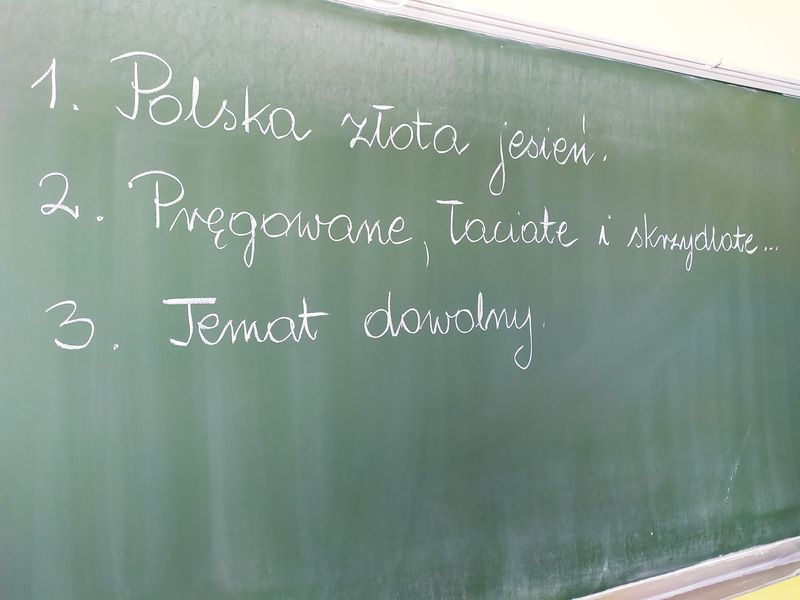 1. Polska złota jesień.
2. Pręgowane, łaciate i skrzydlate...
3. Temat dowolny.